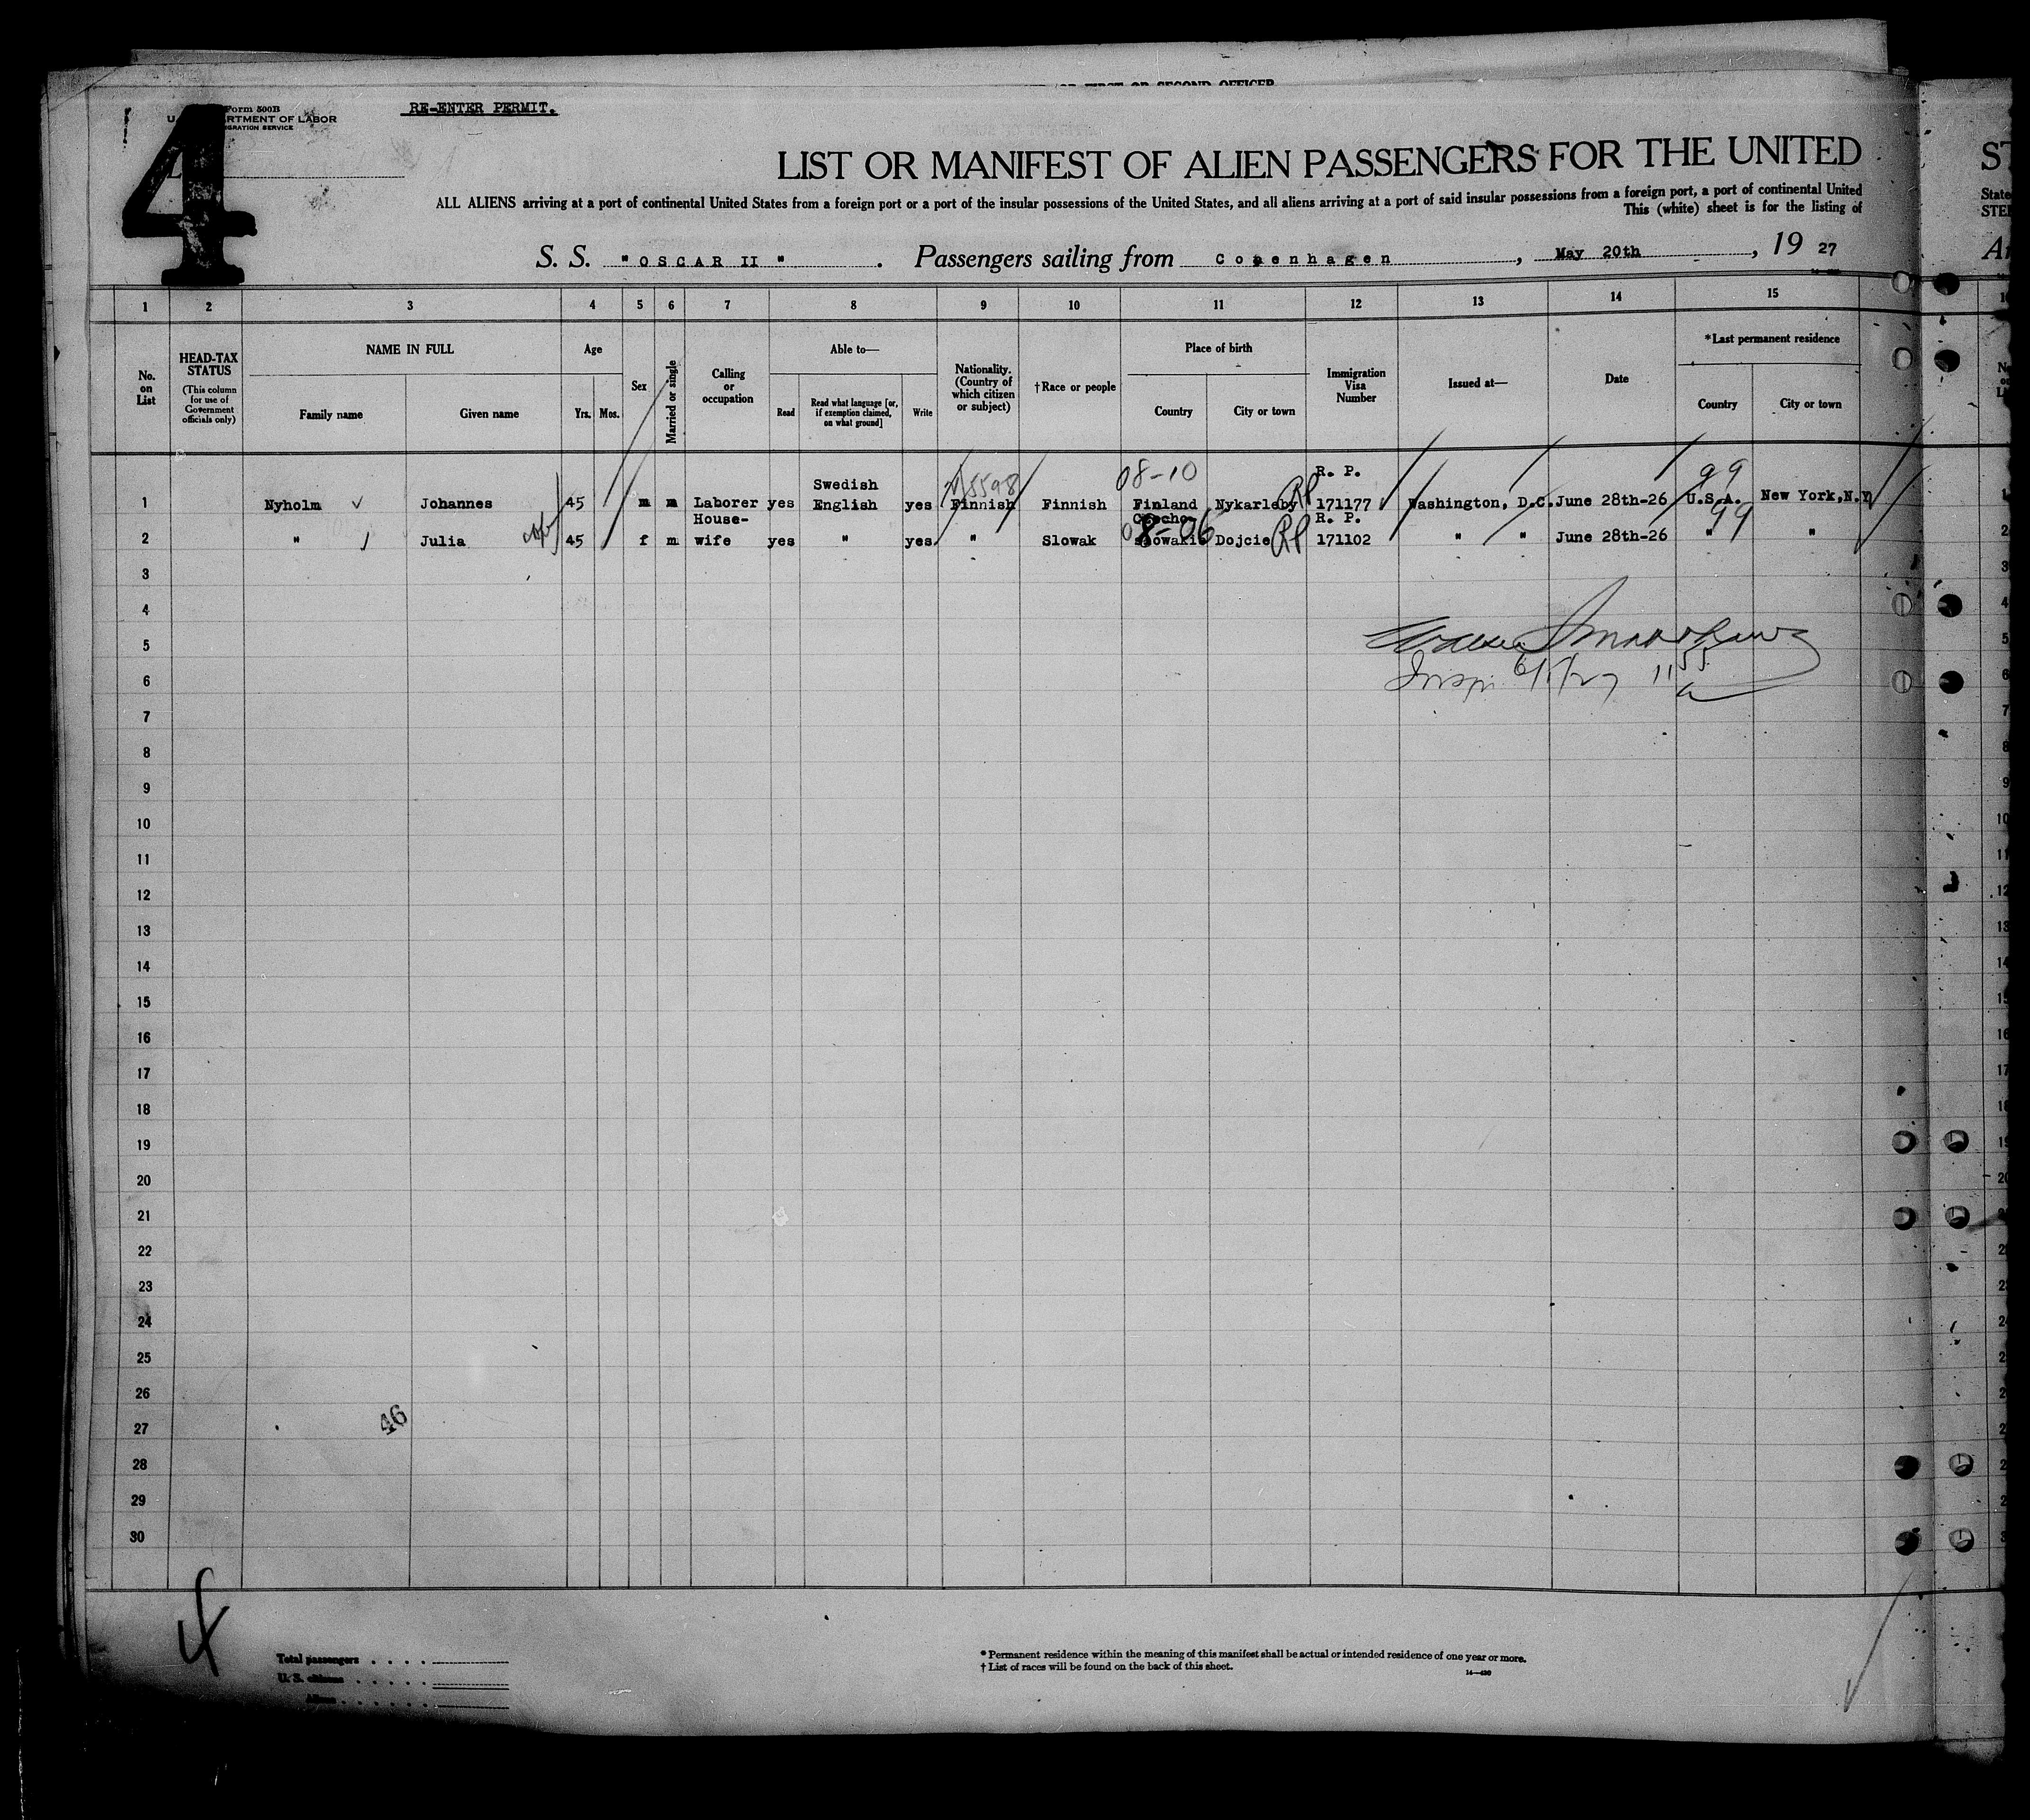 OF FIRST OR SECOND OFFICER
Form 500B
U. S. DEPARTMENT OF LABOR
IMMIGRATION SERVICE
RE-ENTER PERMIT.
4
LIST OR MANIFEST OF ALIEN PASSENGERS FOR THE UNITED
ALL ALIENS arriving at a port of continental United States from a foreign port or a port of the insular possessions of the United States, and all aliens arriving at a port of said insular possessions from a foreign port, a port of continental United
This (white) sheet is for the listing of
S. S. "OSCAR II" . Passengers sailing from Copenhagen , May 20th , 19 27
1 2 3 4 5 6 7 8 9 10 11 12 13 14 15
No. on List
HEAD-TAX STATUS
(This column for use of Government officials only)
NAME IN FULL
Family name Given name
Age
Yrs. Mos.
Sex
Married or single
Calling or occupation
Able to—
Read
Read what language [or, if exemption claimed, on what ground]
Write
Nationality. (Country of which citizen or subject)
†Race or people
Place of birth
Country City or town
Immigration Visa Number
Issued at—
Date
*Last permanent residence
Country City or town
08-10 R. P. 99
1 Nyholm Johannes 45 m m Laborer yes Swedish English yes Finnish Finnish Finland Nykarleby RP 171177 Washington, D.C. June 28th-26 U.S.A. New York, N.Y
08-06 R. P. 99
2 " Julia 45 f m House-wife yes " yes " Slowak Czecho-slowakie Dojcie RP 171102 " " June 28th-26 " "
3
4
5
6
Insp. 6/1/27 11 55 a
7
8
9
10
11
12
13
14
15
16
17
18
19
20
21
22
23
24
25
26
27
46
28
29
30
4
Total passengers
U. S. citizens
Aliens
* Permanent residence within the meaning of this manifest shall be actual or intended residence of one year or more.
† List of races will be found on the back of this sheet.
14—430